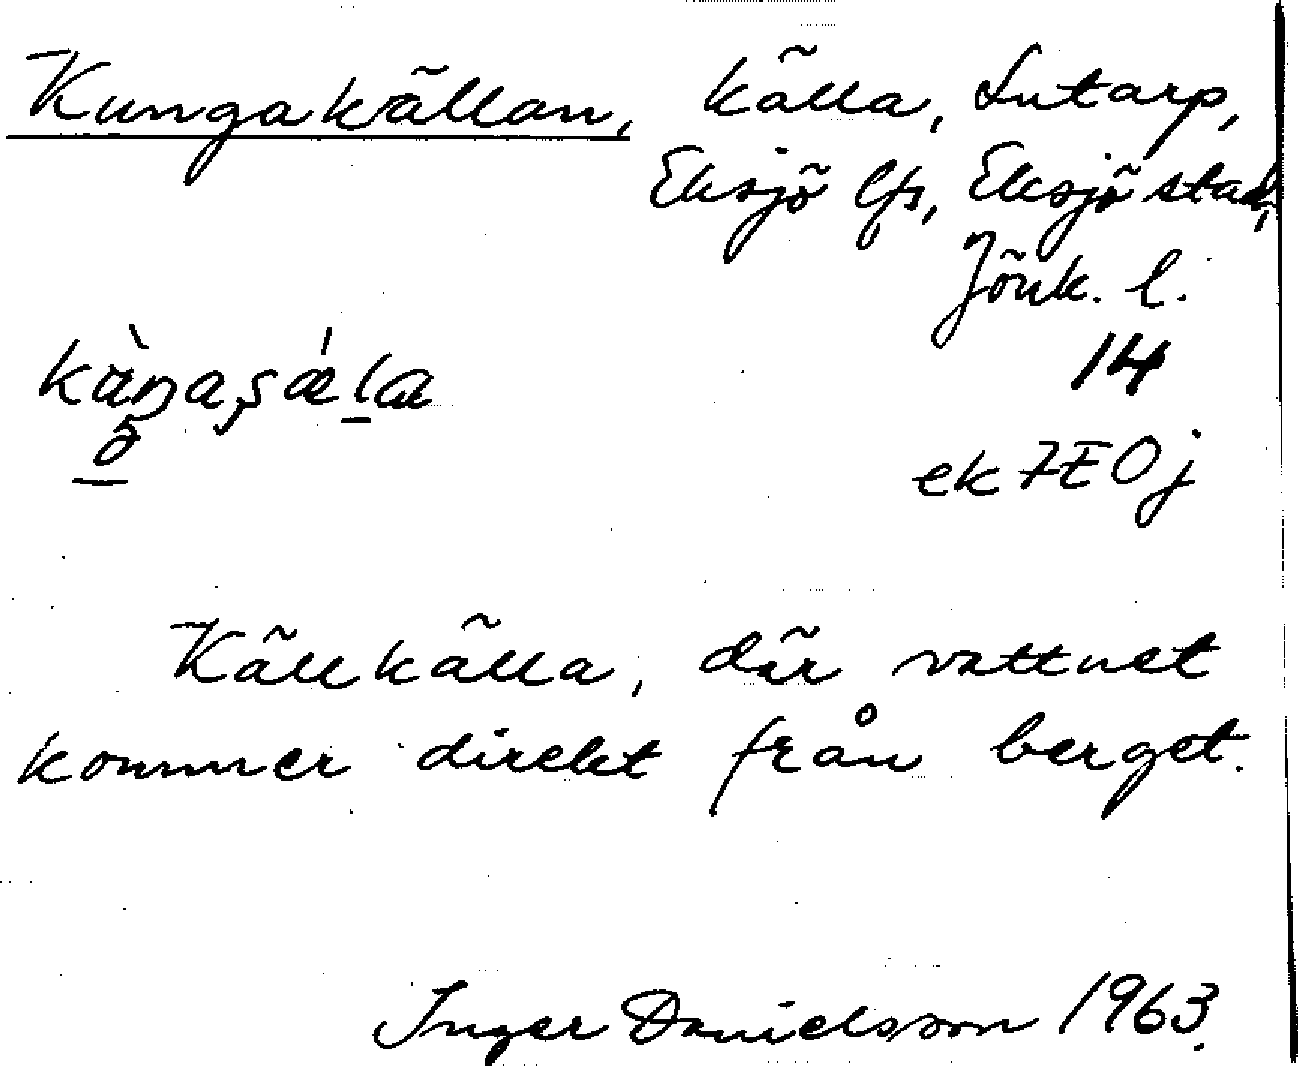 Kungakällan, källa, Lutarp,
Eksjö lfs, Eksjö stad,
Jönk. l.
14
ek 7E0j
Källkälla, där vattnet
kommer direkt från berget.
Inger Danielsson 1963.